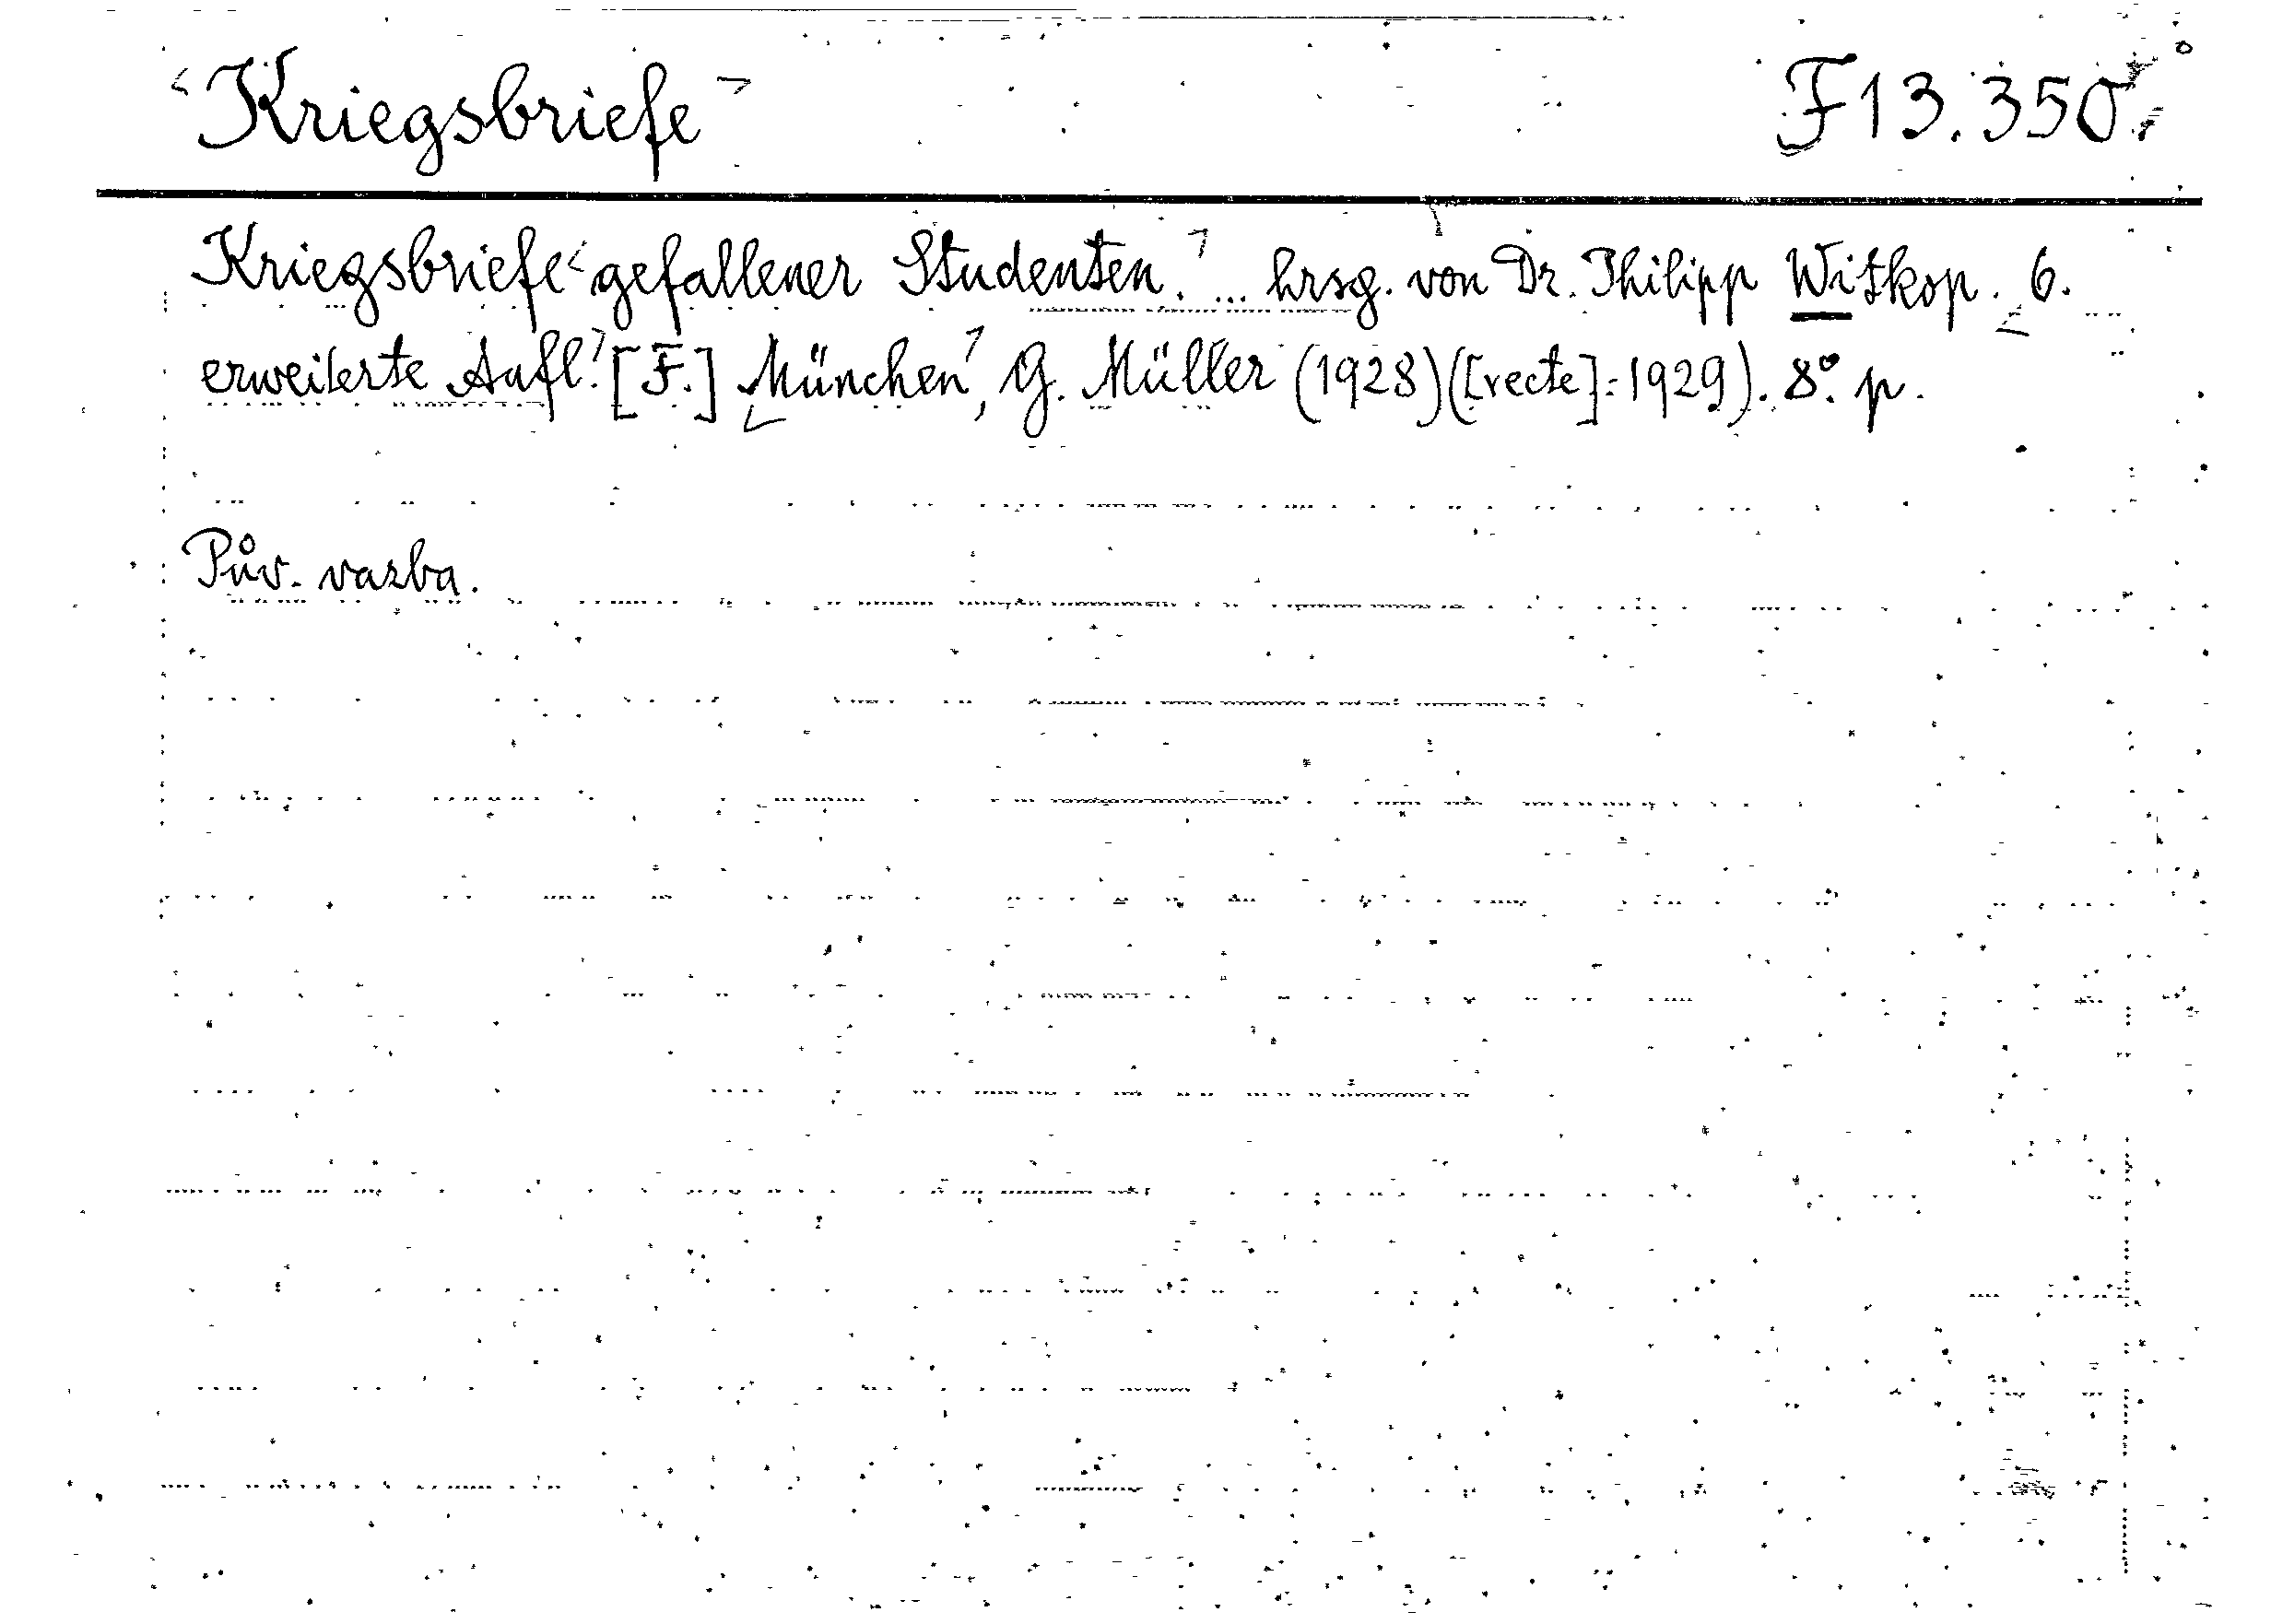 Kriegsbriefe F 13.350.
Kriegsbriefe gefallener Studenten. ... hrsg. von Dr. Philipp Witkop. 6.
erweiterte Aufl. [F.] München, G. Müller (1928)([recte]: 1929). 8°. p.
Pův. vazba.